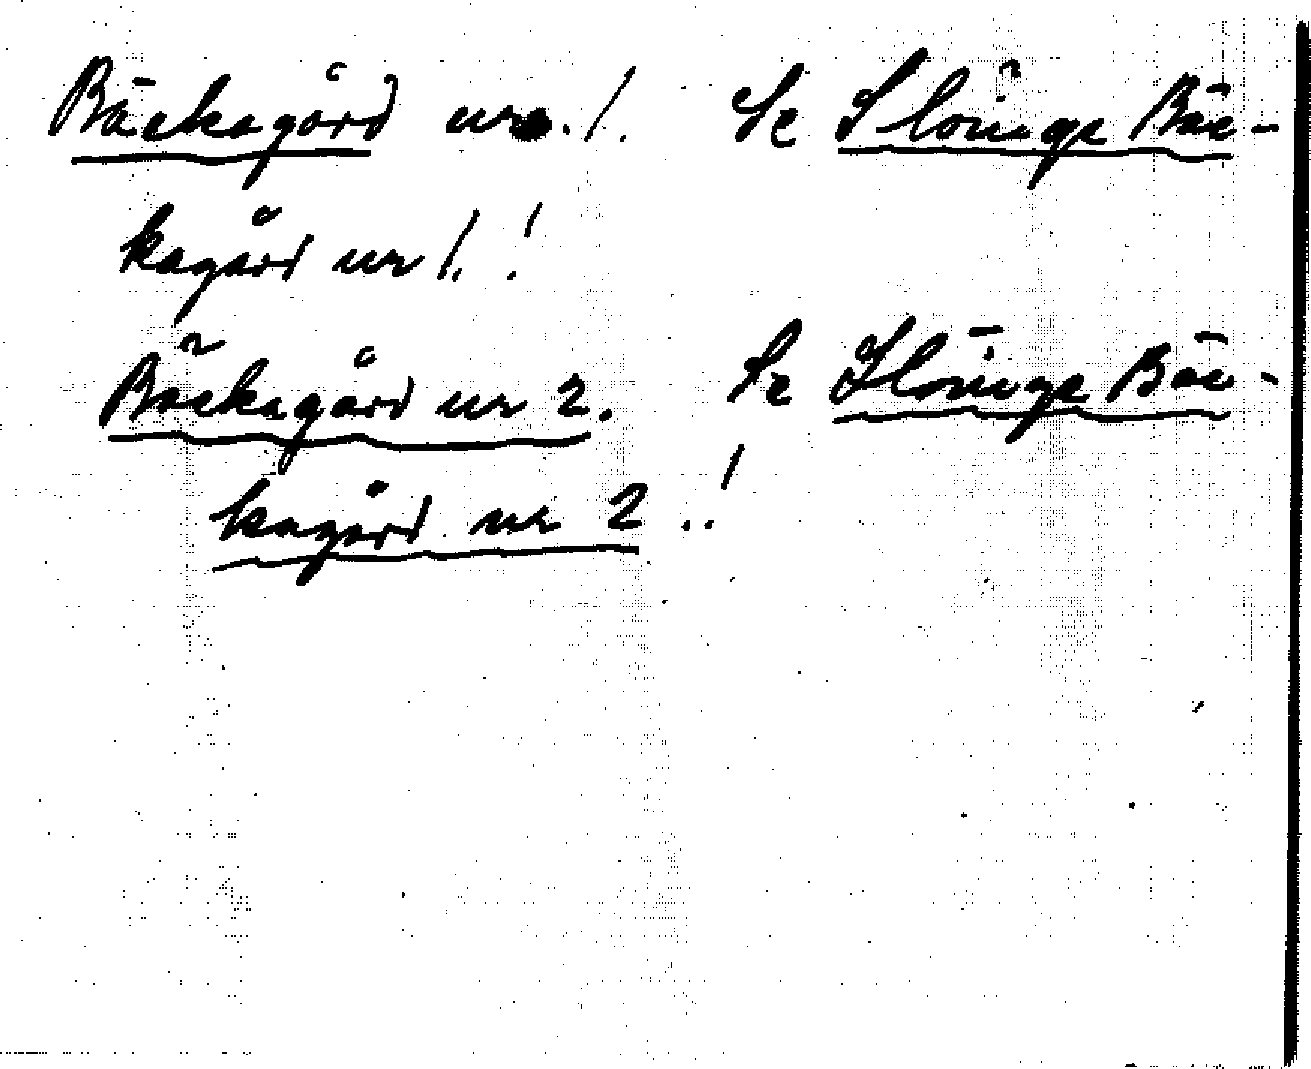 Bäckagård nr. 1. Se Slöinge Bäc-
kagård nr 1. !
Bäckagård nr 2. Se Slöinge Bäc-
kagård nr 2 . !